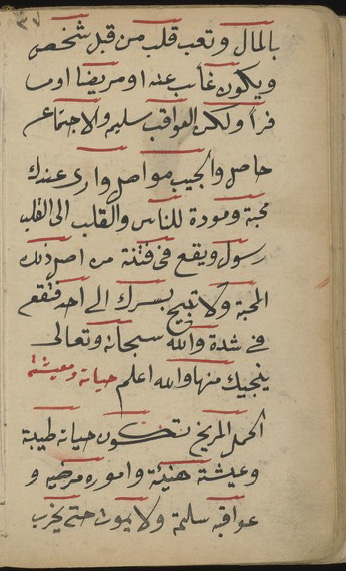 بالمال وتعب قلب من قبل شخص
ويكون غائب عنه او مريضا او مسا
فرا ولكن العواقب سليمه والاجتماع
حاصل والحبيب مواصل وارى عندك
محبة ومودة للناس والقلب الى القلب
رسول ويقع فى فتنة من اصل ذلك
المحبة ولا تبيح بسرك الى احد فتقع
فى شدة والله سبحانه وتعالى
ينجيك منها والله اعلم حياته ومعيشته
الحمل المريخ تكون حياته طيبة
وعيشة هنيئة واموره مرضيه و
عواقبه سليمة ولا يموت حتى يخرب